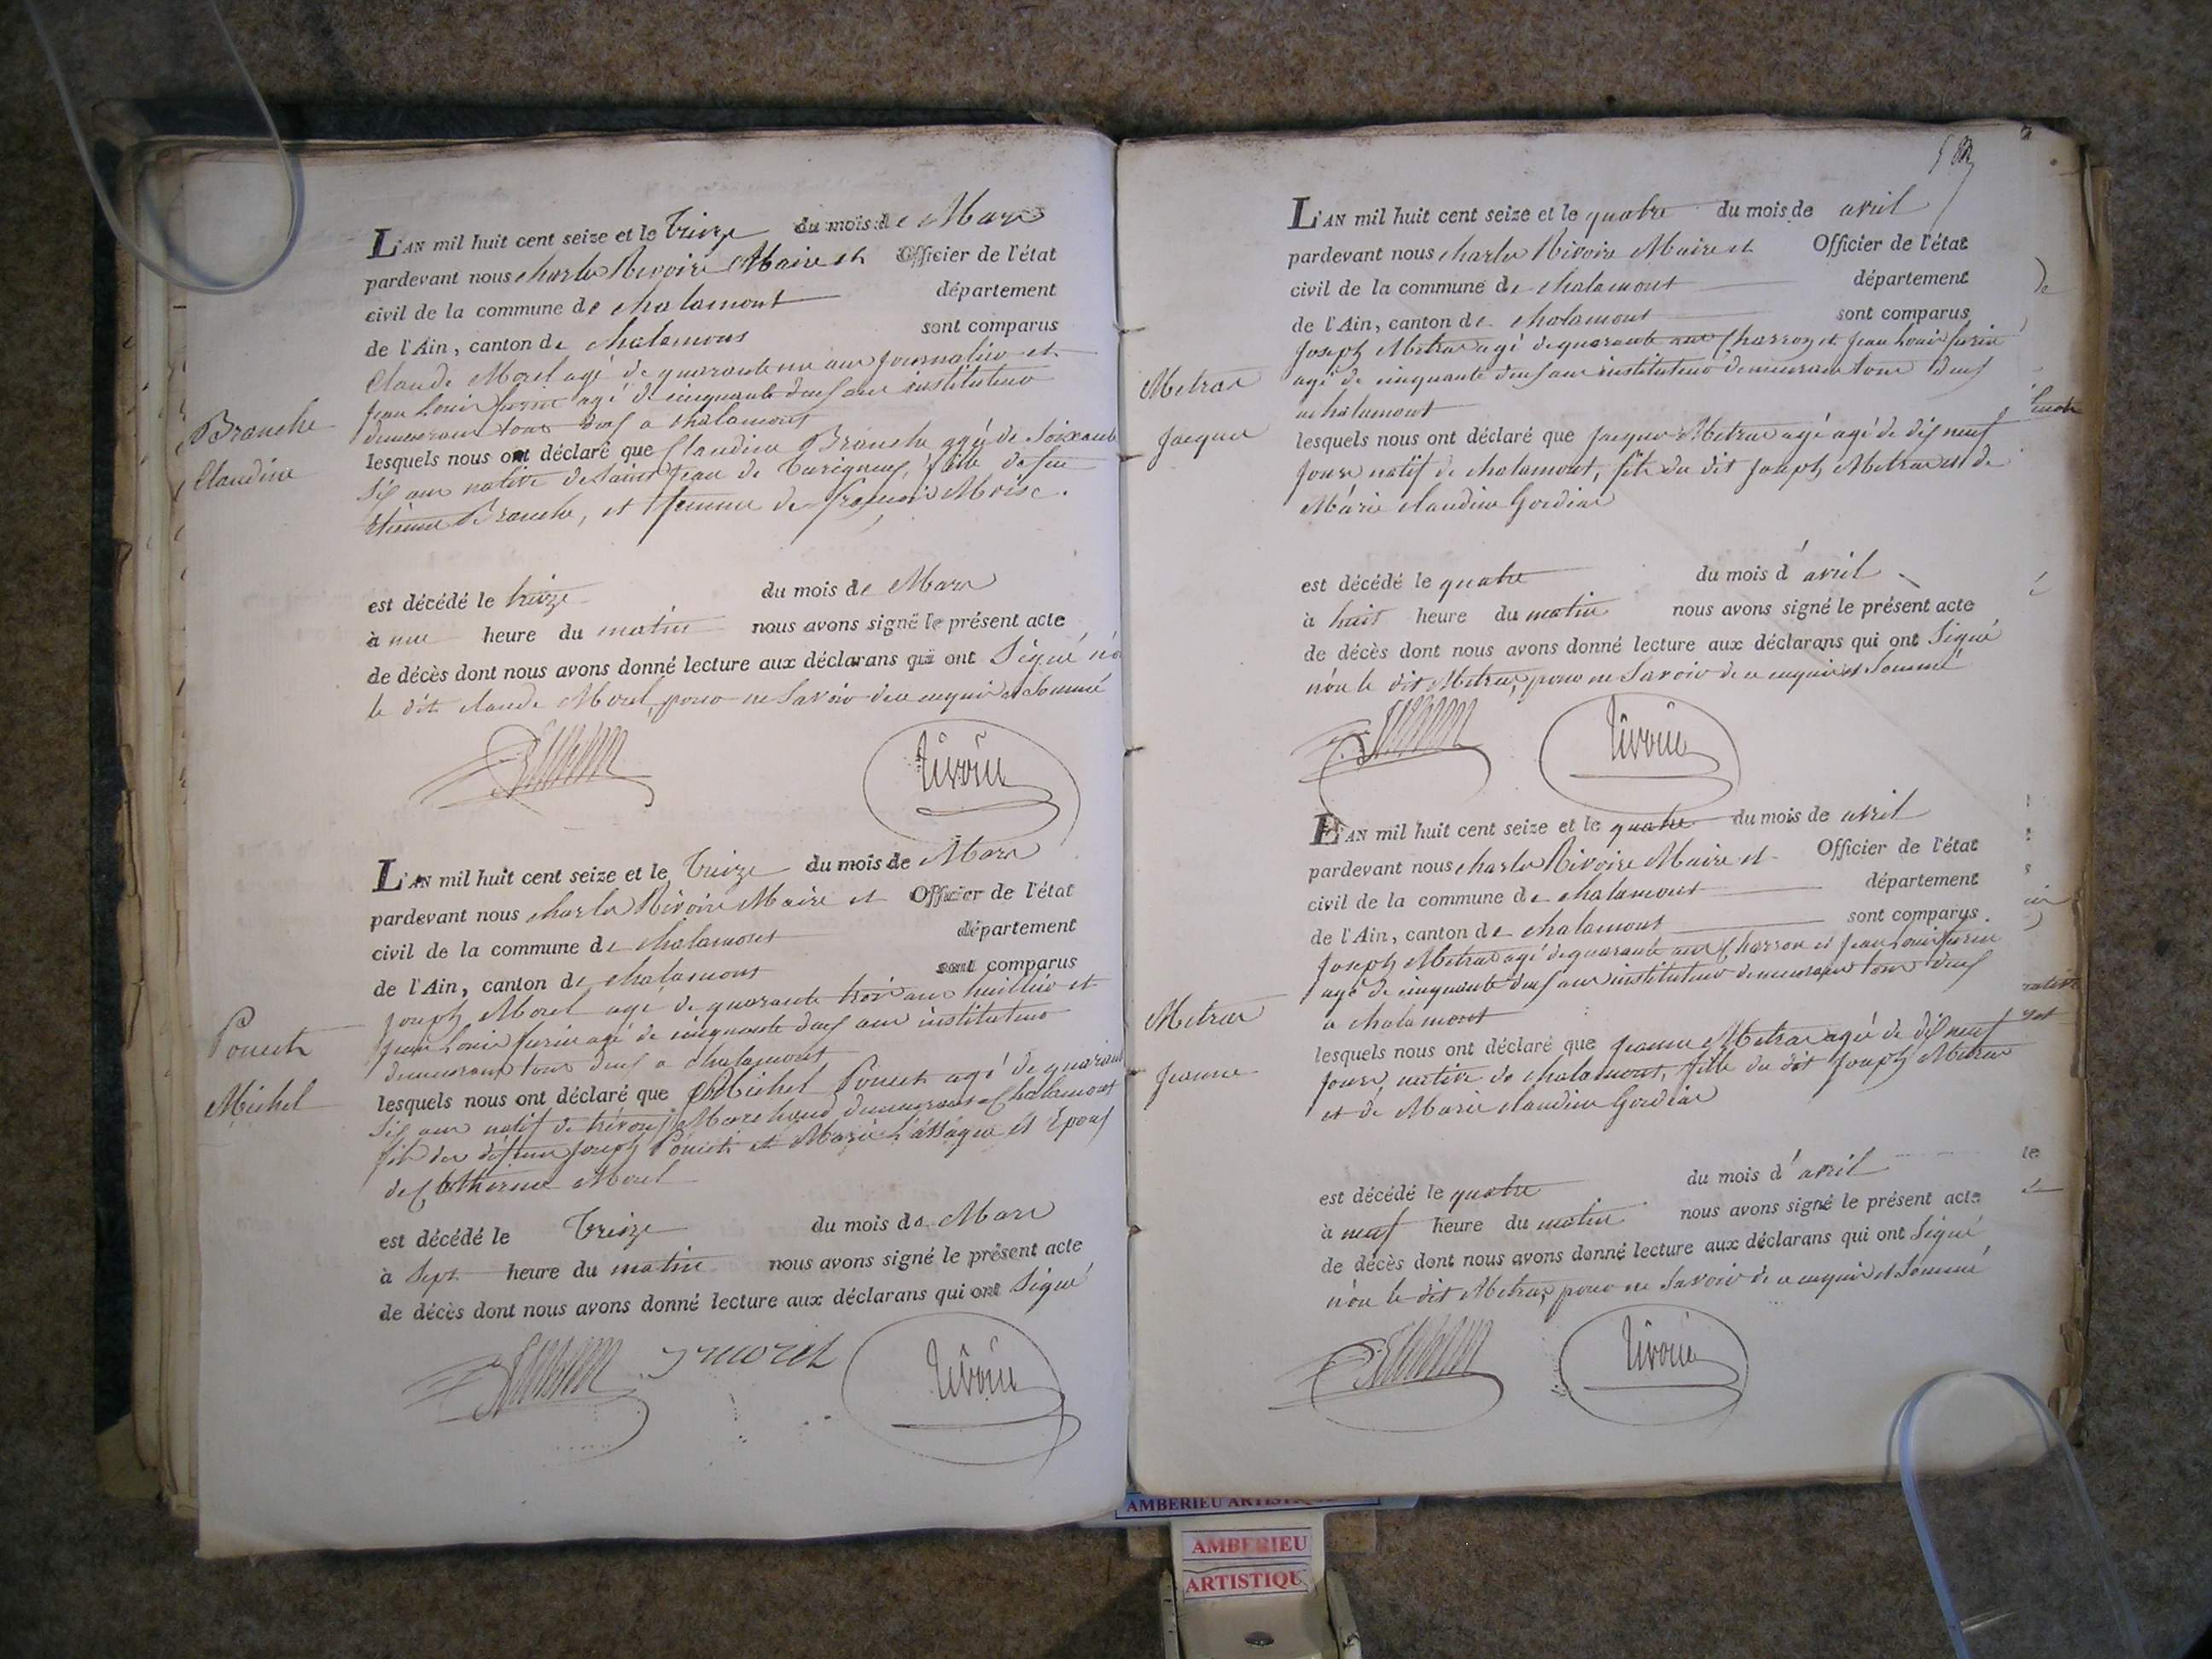 L'AN mil huit cent seize et le treize du mois de Mars
pardevant nous charles Rivoire Maire et Officier de l'état
civil de la commune de chalamont département
de l'Ain, canton de chalamont sont comparus
Claude Morel agé de quarante un ans journalier et
jean Louis agé de cinquante deux ans instituteur
demeurant tous deux a chalamont
Branche
Claudine
lesquels nous ont déclaré que Claudine Branche agée de Soixante
Six ans native de Saint jean de turigneux, fille de feu
Etienne Branche, et femme de françois
est décédé le treize du mois de Mars
à une heure du matin nous avons signé le présent acte
de décès dont nous avons donné lecture aux déclarans qui ont Signé
le dit claude Morel, pour ne Savoir de ce enquis et Sommé
rivoire
L'AN mil huit cent seize et le treize du mois de Mars
pardevant nous charles Rivoire Maire et Officier de l'état
civil de la commune de chalamont département
de l'Ain, canton de chalamont sont comparus
joseph Morel agé de quarante trois ans huillier et
jean Louis agé de cinquante deux ans instituteur
demeurant tous deux a chalamont
Michel
lesquels nous ont déclaré que Michel agé de quarante
Six ans natif de trévoux Marchand demeurant a Chalamont
fils des défunts joseph et Marie et Epoux
de Catherine Morel
est décédé le treize du mois de Mars
à Sept heure du matin nous avons signé le présent acte
de décès dont nous avons donné lecture aux déclarans qui ont Signé
jmorel rivoire
L'AN mil huit cent seize et le quatre du mois de avril
pardevant nous charles Rivoire Maire et Officier de l'état
civil de la commune de chalamont département
de l'Ain, canton de chalamont sont comparus
joseph Metras agé de quarante ans Charron et jean Louis
agé de cinquante deux ans instituteur demeurant tous deux
a chalamont
Metras
jacques
lesquels nous ont déclaré que jacques Metras agé agé de dix neuf
jours natif de chalamont, fils du dit joseph Metras et de
Marie claudine
est décédé le quatre du mois d'avril
à huit heure du matin nous avons signé le présent acte
de décès dont nous avons donné lecture aux déclarans qui ont Signé
non le dit Metras, pour ne Savoir de ce enquis et Sommé
rivoire
L'AN mil huit cent seize et le quatre du mois de avril
pardevant nous charles Rivoire Maire et Officier de l'état
civil de la commune de chalamont département
de l'Ain, canton de chalamont sont comparus
joseph Metras agé de quarante ans Charron et jean Louis
agé de cinquante deux ans instituteur demeurant tous deux
a chalamont
Metras
jeanne
lesquels nous ont déclaré que jeanne Metras agée de dix neuf
jours, native de chalamont, fille du dit joseph Metras
et de Marie claudine
est décédé le quatre du mois d'avril
à neuf heure du matin nous avons signé le présent acte
de décès dont nous avons donné lecture aux déclarans qui ont Signé
non le dit Metras, pour ne Savoir de ce enquis et Sommé
rivoire
AMBERIEU ARTISTIQUE
AMBERIEU
ARTISTIQU